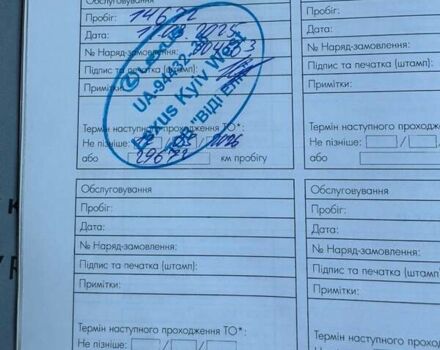 Обслуговування
Пробіг: 14672
Дата: 2025
№ Наряд-замовлення
Підпис та печатка (штамп):
Примітки:
Lexus Kyiv West
Термін наступного проходження ТО*:
Не пізніше: / /
або 29672 км пробігу
Пробіг:
Дата:
№ Наряд-замовлення:
Підпис та печатка (штамп):
Примітки:
Термін наступного проходже
Не пізніше: / /
або
Обслуговування
Пробіг:
Дата:
№ Наряд-замовлення:
Підпис та печатка (штамп):
Примітки:
Термін наступного проходження ТО*:
Не пізніше: / /
Обслуговування
Пробіг:
Дата:
№ Наряд-замовлення:
Підпис та печатка (штамп):
Примітки:
Термін наступного проходжен
Не пізніше: / /